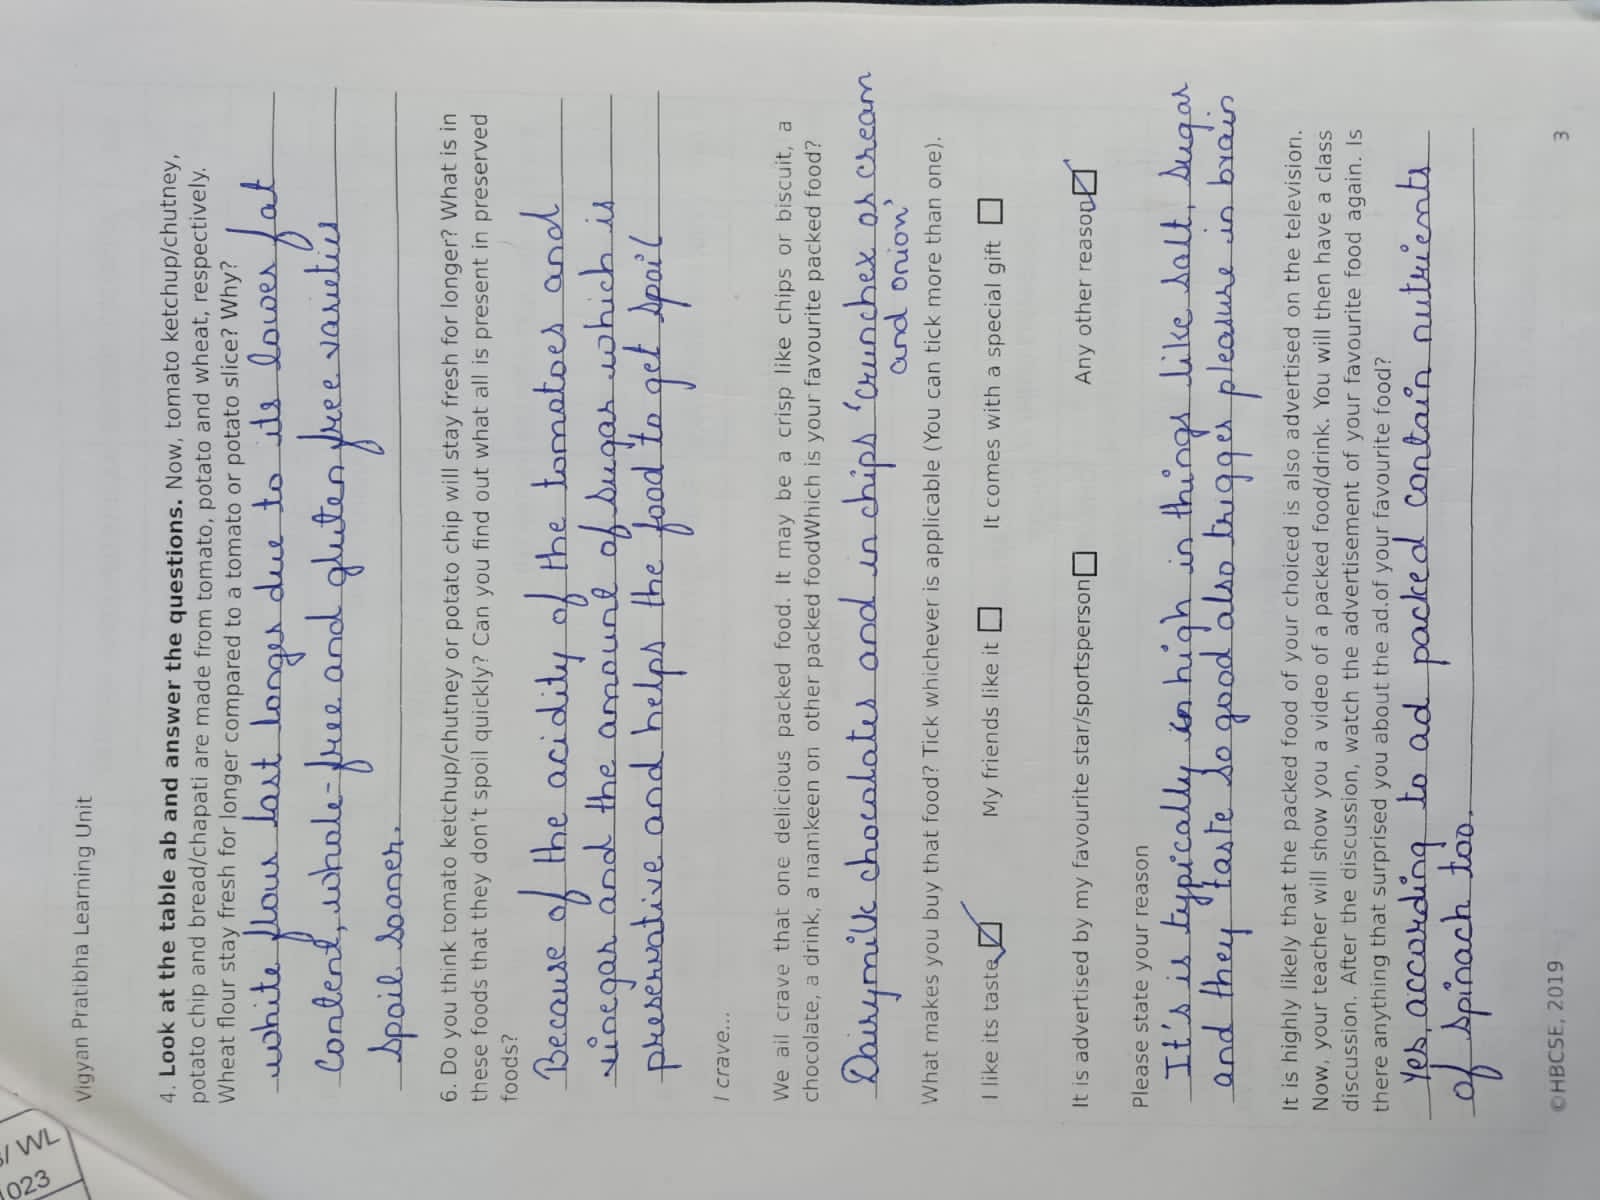 s/ VVL
1023
Vigyan Pratibha Learning Unit
4. Look at the table ab and answer the questions. Now, tomato ketchup/chutney,
potato chip and bread/chapati are made from tomato, potato and wheat, respectively.
Wheat flour stay fresh for longer compared to a tomato or potato slice? Why?
white flour last longer due to its lower fat
content, whole-free and gluten free varieties
spoil sooner.
6. Do you think tomato ketchup/chutney or potato chip will stay fresh for longer? What is in
these foods that they don't spoil quickly? Can you find out what all is present in preserved
foods?
Because of the acidity of the tomatoes and
vinegar and the amount of sugar which is
preservative and helps the food to get spoil
I crave...
We all crave that one delicious packed food. It may be a crisp like chips or biscuit, a
chocolate, a drink, a namkeen on other packed foodWhich is your favourite packed food?
Dairymilk chocolates and in chips 'crunchex or cream
and onion'
What makes you buy that food? Tick whichever is applicable (You can tick more than one).
I like its taste My friends like it It comes with a special gift
It is advertised by my favourite star/sportsperson Any other reason
Please state your reason
It's is typically in high in things like salt, sugar
and they taste so good also trigger pleasure in brain
It is highly likely that the packed food of your choiced is also advertised on the television.
Now, your teacher will show you a video of a packed food/drink. You will then have a class
discussion. After the discussion, watch the advertisement of your favourite food again. Is
there anything that surprised you about the ad.of your favourite food?
Yes, according to ad packed contain nutrients
of spinach too.
©HBCSE, 2019 3